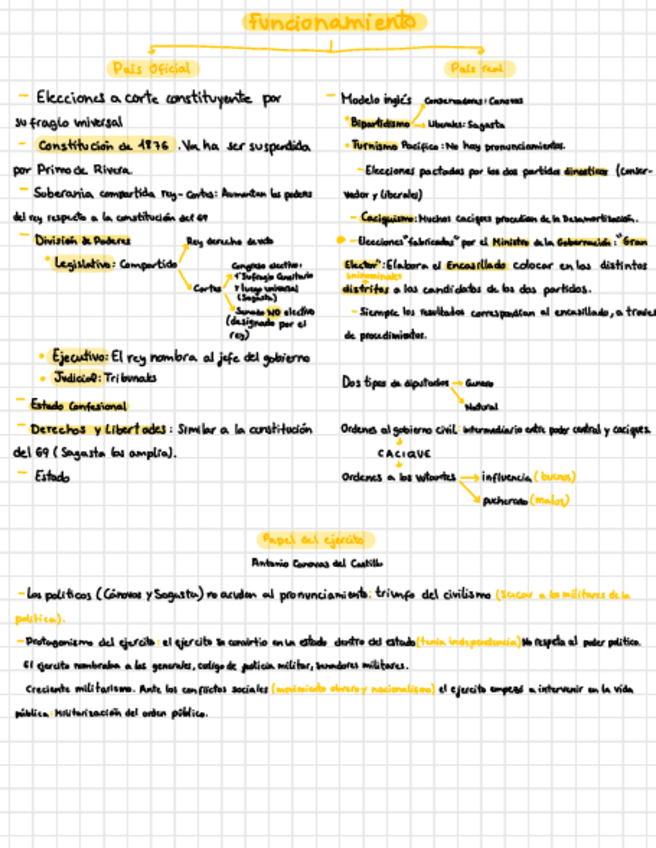 Funcionamiento
País Oficial
- Elecciones a corte constituyente por
sufragio universal
- Constitución de 1876. Va ha ser suspendida
por Primo de Rivera.
- Soberanía compartida rey-Cortes: Aumentan los poderes
del rey respecto a la constitución del 69
- División de Poderes
• Legislativo: Compartido
Rey derecho de veto
Cortes
Congreso electivo:
1º Sufragio Censitario
y luego universal
(Sagasta)
Senado NO electivo
(designado por el
rey)
• Ejecutivo: El rey nombra al jefe del gobierno
• Judicial: Tribunales
- Estado Confesional
- Derechos y Libertades: Similar a la constitución
del 69 (Sagasta las amplía).
- Estado
País real
- Modelo inglés
• Bipartidismo
Conservadores: Canovas
Liberales: Sagasta
• Turnismo Pacífico: No hay pronunciamientos.
- Elecciones pactadas por los dos partidos dinasticos (Conser-
vador y liberales)
- Caciquismo: Muchos caciques procedian de la Desamortización.
- Elecciones "fabricadas" por el Ministro de la Gobernación: "Gran
Elector": Elabora el Encasillado colocar en los distintos
uninominales
distritos a los candidatos de los dos partidos.
- Siempre los resultados correspondían al encasillado, a traves
de procedimientos.
Dos tipos de diputados
Cunero
Natural
Ordenes al gobierno civil: intermediario entre poder central y caciques.
CACIQUE
Ordenes a los votantes
influencia (buenos)
pucherazo (malos)
Papel del ejército
Antonio Canovas del Castillo
- Los políticos (Cánovas y Sagasta) no acuden al pronunciamiento: triunfo del civilismo (Sacar a los militares de la
política).
- Protagonismo del ejercito: el ejercito se convirtio en un estado dentro del estado (tenia independencia) No respeta al poder politico.
El ejercito nombraba a los generales, codigo de justicia militar, senadores militares.
Creciente militarismo. Ante los conflictos sociales (movimiento obrero y nacionalismo) el ejercito empezó a intervenir en la vida
pública: Militarización del orden público.